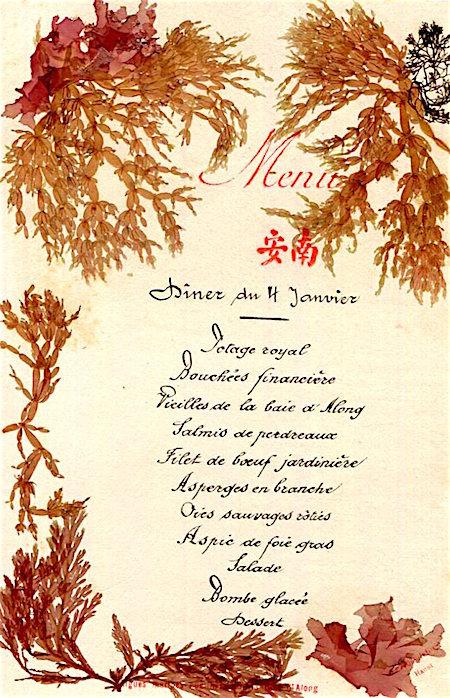 Menu
安南
Dîner du 4 Janvier
Potage royal
Bouchées financière
Vieilles de la baie d'Along
Salmis de perdreaux
Filet de bœuf jardinière
Asperges en branche
Oies sauvages rôties
Aspic de foie gras
Salade
Bombe glacée
Dessert
Along
Hanoï